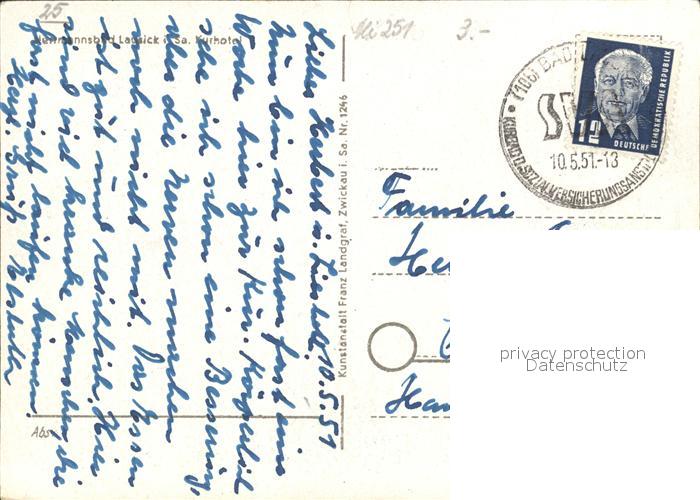 25
Mi 251
3.-
Herrmannsbad Lausick i. Sa. Kurhotel
Liebes Herbert u. Lieselott. 10.5.51
Nun bin ich schon fast eine
Woche hier zur Kur. Körperlich
sehe ich schon eine Besserung,
aber die Nerven machen
noch nicht mit. Das Essen
ist gut und reichlich. Hier
sind viel kranke Menschen die
gar nicht laufen können.
Herzl. Grüße
Abs.
Kunstanstalt Franz Landgraf, Zwickau i. Sa. Nr. 1246
(10b) BAD
10.5.51-13
KURBAD D. SOZIALVERSICHERUNGSANST
12
DEUTSCHE
DEMOKRATISCHE REPUBLIK
Familie
privacy protection
Datenschutz